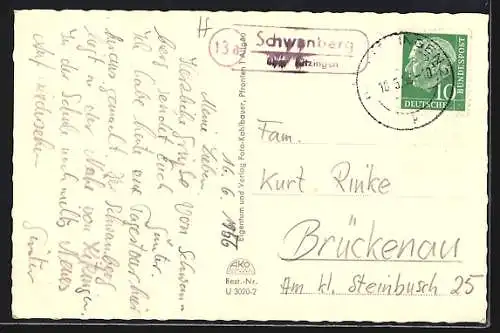 Meine Lieben. 16. 6. 1956
Herzliche Grüße vom Schwan-
berg sendet Euch Günter.
Ich habe heute eine Tagestour hier
heraus gemacht. Der Schwanberg
liegt in der Nähe von Kitzingen.
In der Schule noch nichts Neues
Auf Wiedersehen
Günter
Eigentum und Verlag Foto-Kohlbauer, Pfronten i. Allgäu
AKO
Best.-Nr.
U 3020-2
13a
Schwanberg
über Kitzingen
DEUTSCHE
BUNDESPOST
10
Fam.
Kurt Rinke
Brückenau
Am kl. Steinbusch 25